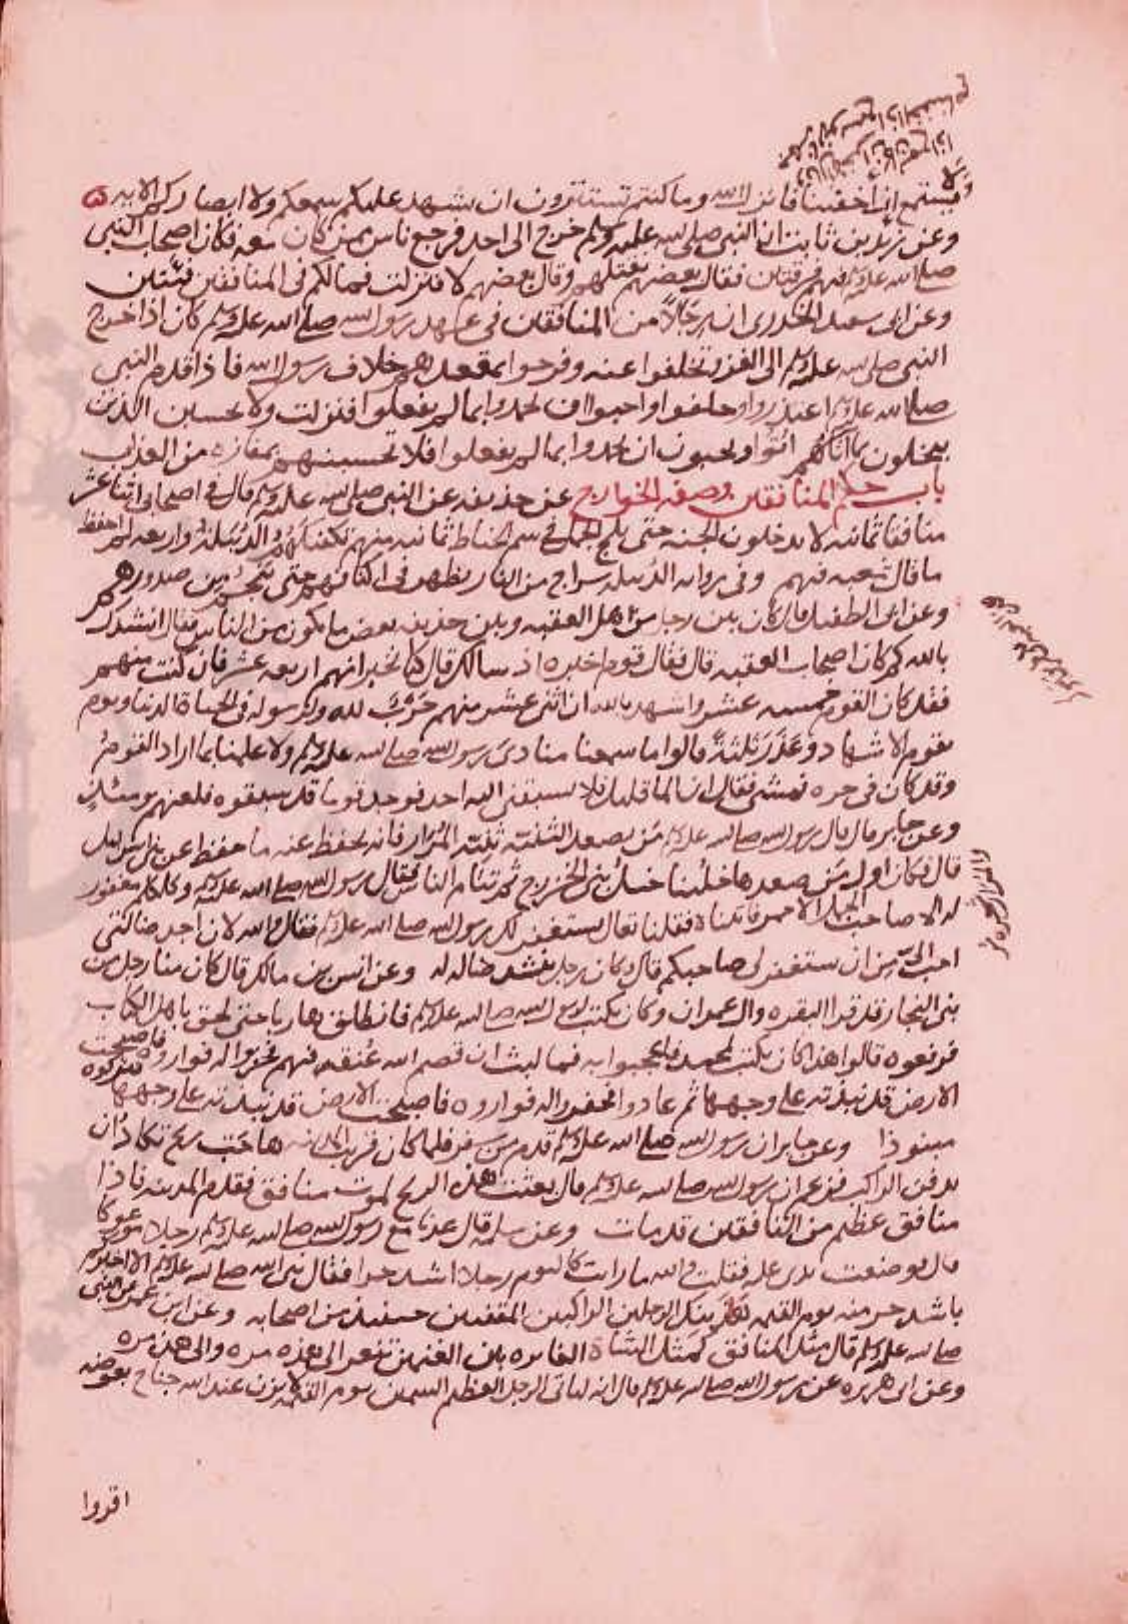 ولا يستمع ان اخفينا فانزل الله وما كنتم تستترون ان يشهد عليكم سمعكم ولا ابصاركم الايه
وعن زيد بن ثابت ان النبي صلى الله عليه وسلم خرج الى احد فرجع ناس ممن كان معه فكان اصحاب النبي
صلى الله عليه وسلم فيهم فرقتان فقال بعضهم نقتلهم وقال بعضهم لا فنزلت فمالكم في المنافقين فئتين
وعن ابي سعيد الخدري ان رجالا من المنافقين في عهد رسول الله صلى الله عليه وسلم كان اذا خرج
النبي صلى الله عليه وسلم الى الغزو تخلفوا عنه وفرحوا بمقعدهم خلاف رسول الله فاذا قدم النبي
صلى الله عليه وسلم اعتذروا وحلفوا واحبوا ان يحمدوا بما لم يفعلوا فنزلت ولا تحسبن الذين
اتوا ويحبون ان يحمدوا بما لم يفعلوا فلا تحسبنهم بمفازة من العذاب
باب حكم المنافقين وصفة الخوارج عن حذيفه عن النبي صلى الله عليه وسلم قال في اصحابي اثنا عشر
منافقا ثمانيه لا يدخلون الجنه حتى يلج الجمل في سم الخياط ثمانيه منهم تكفيكهم الدبيلة واربعه لم احفظ
ما قال شعبه فيهم وفي روايه الدبيله سراج من النار يظهر في اكتافهم حتى ينجم من صدورهم
وعن ابي الطفيل قال كان بين رجل من اهل العقبه وبين حذيفه بعض ما يكون بين الناس فقال انشدك
بالله كم كان اصحاب العقبه قال فقال له القوم اخبره اذ سالك قال كنا نخبر انهم اربعه عشر فان كنت منهم
فقد كان القوم خمسه عشر واشهد بالله ان اثنى عشر منهم حرب لله ولرسوله في الحياة الدنيا ويوم
يقوم الاشهاد وعذر ثلثة قالوا ما سمعنا منادي رسول الله صلى الله عليه وسلم ولا علمنا بما اراد القوم
وقد كان في حره فمشى فقال ان الما قليل فلا يسبقني اليه احد فوجد قوما قد سبقوه فلعنهم يومئذ
وعن جابر قال قال رسول الله صلى الله عليه وسلم من يصعد الثنية ثنية المرار فانه يحط عنه ما حط عن بني اسرائيل
قال فكان اول من صعدها خيلنا خيل بني الخزرج ثم تتام الناس فقال رسول الله صلى الله عليه وسلم وكلكم مغفور
له الا صاحب الجمل الاحمر فاتيناه فقلنا تعال يستغفر لك رسول الله صلى الله عليه وسلم فقال والله لان اجد ضالتي
احب الي من ان يستغفر لي صاحبكم قال وكان رجل ينشد ضالة له وعن انس بن مالك قال كان منا رجل من
بني النجار قد قرا البقره وال عمران وكان يكتب لرسول الله صلى الله عليه وسلم فانطلق هاربا حتى لحق باهل الكتاب
فرفعوه قالوا هذا كان يكتب لمحمد فاعجبوا به فما لبث ان قصم الله عنقه فيهم فحفروا له فواروه فاصبحت
الارض قد نبذته على وجهها ثم عادوا فحفروا له فواروه فاصبحت الارض قد نبذته على وجهها فتركوه
منبوذا وعن جابر ان رسول الله صلى الله عليه وسلم قدم من سفر فلما كان قرب المدينه هاجت ريح تكاد ان
تدفن الراكب فزعم ان رسول الله صلى الله عليه وسلم قال بعثت هذه الريح لموت منافق فقدم المدينه فاذا
منافق عظيم من المنافقين قد مات وعن سلمه قال عدنا مع رسول الله صلى الله عليه وسلم رجلا موعوكا
قال فوضعت يدي عليه فقلت والله ما رايت كاليوم رجلا اشد حرا فقال نبي الله صلى الله عليه وسلم الا اخبركم
باشد حر منه يوم القيمه هذينك الرجلين الراكبين المقفيين حينئذ من اصحابه وعن ابن عمر عن النبي
صلى الله عليه وسلم قال مثل المنافق كمثل الشاة العائره بين الغنمين تعير الى هذه مره والى هذه مره
وعن ابي هريره عن رسول الله صلى الله عليه وسلم قال انه لياتي الرجل العظيم السمين يوم القيمه لا يزن عند الله جناح بعوضه
اقروا